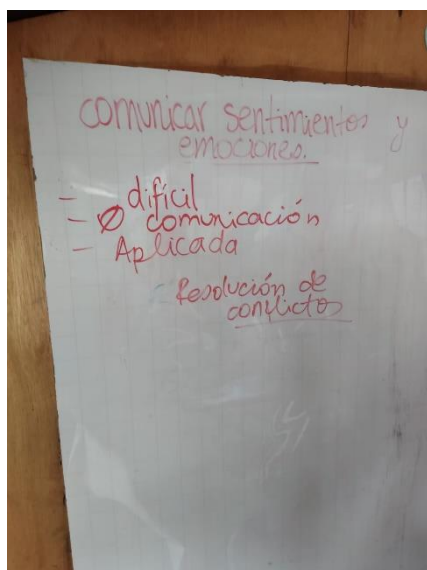 comunicar sentimientos y
emociones.
- difícil
- Ø comunicación
- Aplicada
Resolución de
conflictos